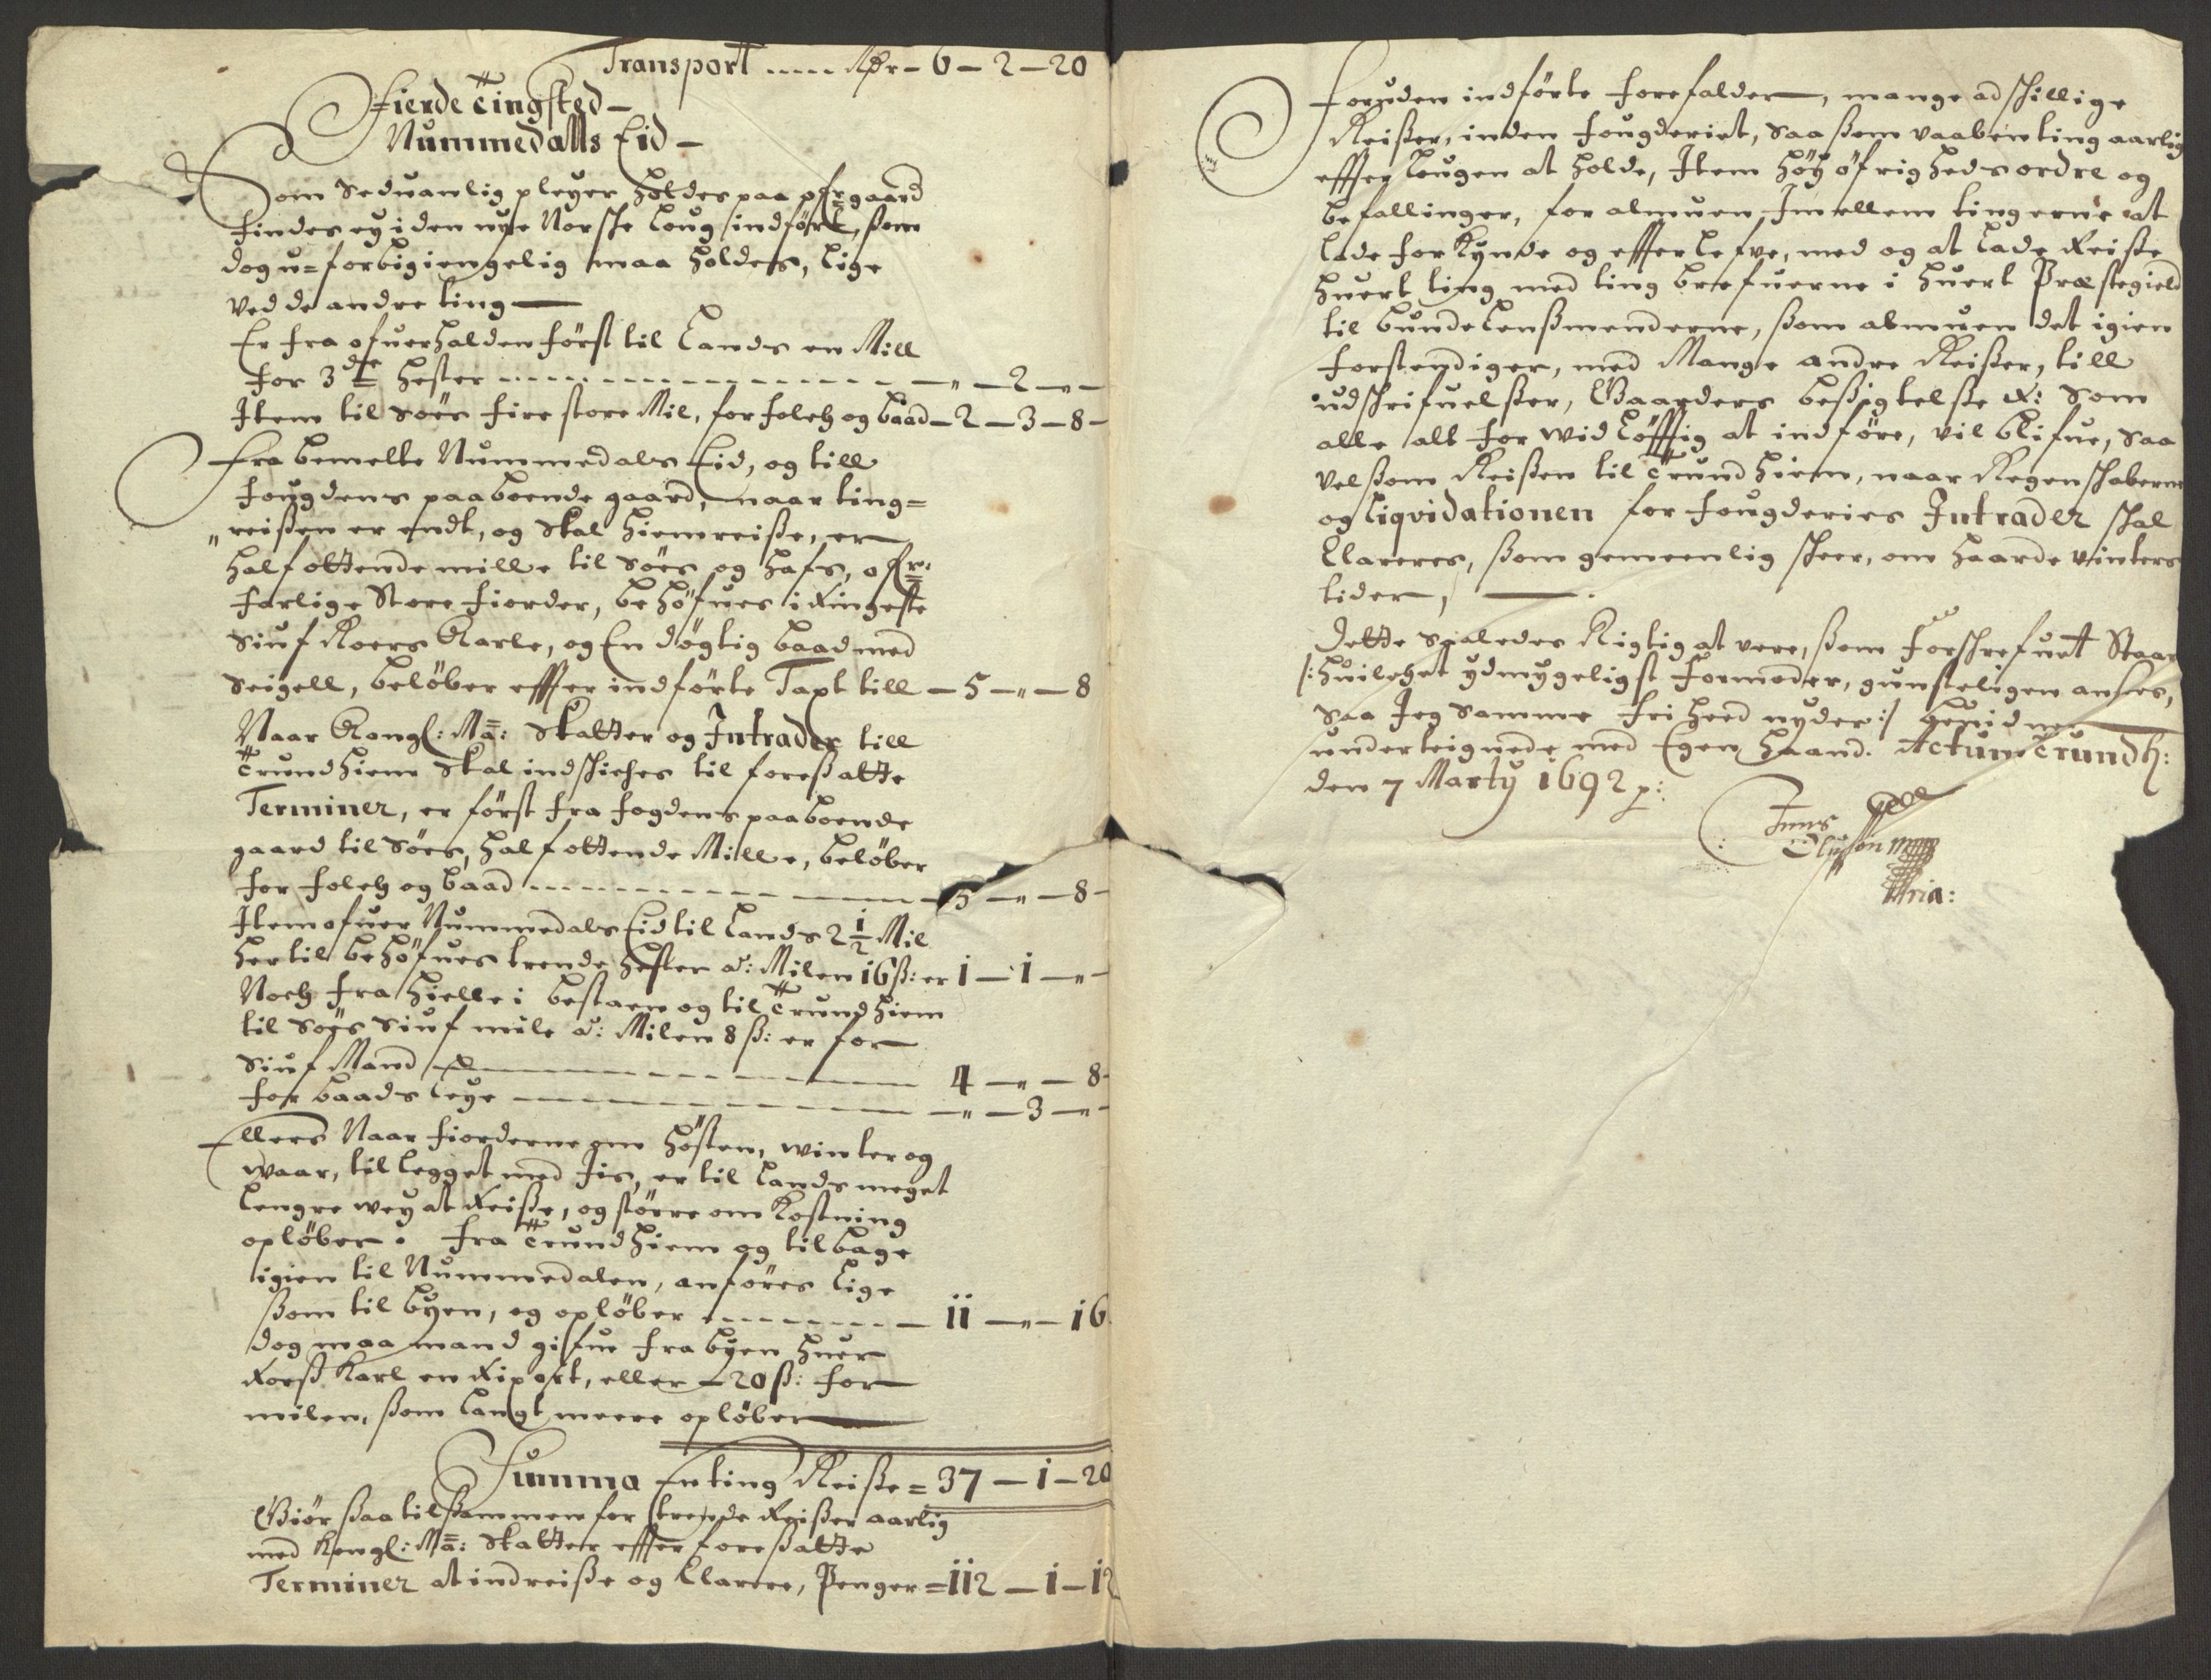 Transport ..... Rdr - 6 - 2 - 20
Fierde Tingsted -
Nummedalls Eid -
Som Seduanlig pleyer holdes paa gaard
findes ey i den nye Norske Loug indført, ßom
dog u=forbigiengelig maa holdes, lige
ved de andre ting -
Er fra ofuerhalden først til Lands en Mill
for 3de hester - - - - - - „ - 2 - „ -
Item til Søes fire store Mil, for folch og baad - 2 - 3 - 8 -
Fra bemelte Nummedals Eid, og till
fougdens paaboende gaard, naar ting=
„reißen er endt, og skal hiemreiße, er
half ottende mille til søes og hafs, ofr:
farlige store fiorder, behøfues i ringeste
siuf Roers Karle, og En døgtig baad med
Seigell, beløber effter indførte Taxt till - 5 - „ - 8
Naar Kongl: Ma: Skatter og Intrader till
Trundhiem skal indschiches til foreßatte
Terminer, er først fra fogdens paaboende
gaard til søes, half ottende Mille, beløber
for folch og baad - - - - - - 5 - „ - 8 -
Item ofuer Nummedals Eid til Lands 2 1/2 Mil
her til behøfues trende hester a: Milen 16 ß: er 1 - 1 - „ -
Noch fra hielle i bestaen og til Trundhiem
til søes siuf mile a: Milen 8 ß: er for
siuf Mand - - - - - - 4 - „ - 8 -
for baads leye - - - - - - „ - 3 - „ -
Ellers Naar fiorderne om høsten, winter og
waar, til legget med Jis, er til Lands meget
lengre wey at reiße, og større omkostning
opløber. Fra Trundhiem og tilbage
igien til Nummedalen, anføres lige
ßom til byen, og opløber - - - - - - 11 - „ - 16
dog maa mand gifue fra byen huer
Roerß Karl en Rixort, eller - 20 ß: for
milen, ßom langt meere opløber
Summa En ting Reiße = 37 - 1 - 20
Giør ßaa tilßammen for trende Reißer aarlig
med Kongl: Ma: Skatter effter foreßatte
Terminer at indreiße og Clarere, Penger = 112 - 1 - 12
Foruden indførte forefalder, mange adschillige
Reißer, inden fougderiet, saa ßom vaabenting aarlig
effter Lougen at holde, Item høy øfrigheds ordre og
befallinger, for almuen Imellem tingerne at
lade forkynde og effterlefve, med og at lade Reiße
huert ting med ting brefuerne i huert Præstegield
til bunde Lensmenderne, ßom almuen det igien
forstendiger, med Mange andre Reißer, till
udschrifuelßer, Gaarders beßigtelße &: som
alle alt for widløfftig at indføre, vil blifue, saa
velßom Reißen til Trundhiem, naar Regenschaberne
og Liqvidationen for fougderies Intrader schal
Clareres, ßom gemeenlig scheer, om haarde vinters
tider, -
Dette saaledes Rigtig at vere, ßom Forschrefuet Staar
/: huilchet ydmygeligst Formoder, gunsteligen ansees,
saa Jeg samme friheed nyder :/ beuidner
underteignede med Egen Haand. Actum Trundh:
den 7 Marty 1692 p:
Jens
Olußøn